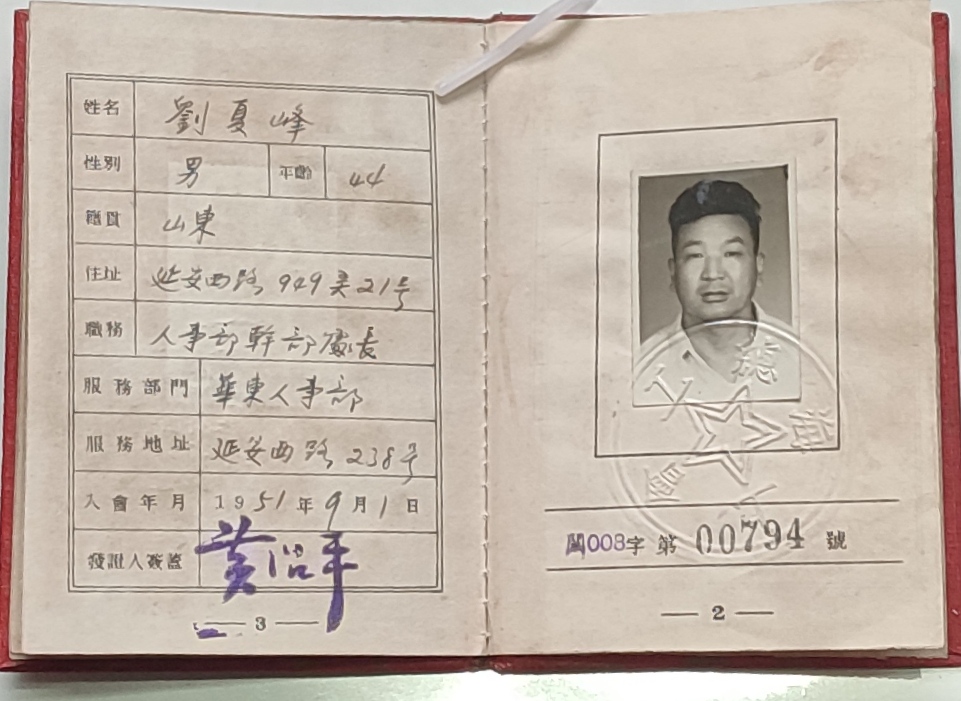 姓名 劉夏峰
性别 男 年齡 44
籍貫 山東
住址 延安西路949弄21号
職務 人事部幹部處長
服務部門 華東人事部
服務地址 延安西路238号
入會年月 1951年9月1日
發證人簽蓋
— 3 —
工
總
會
008字第 00794 號
— 2 —